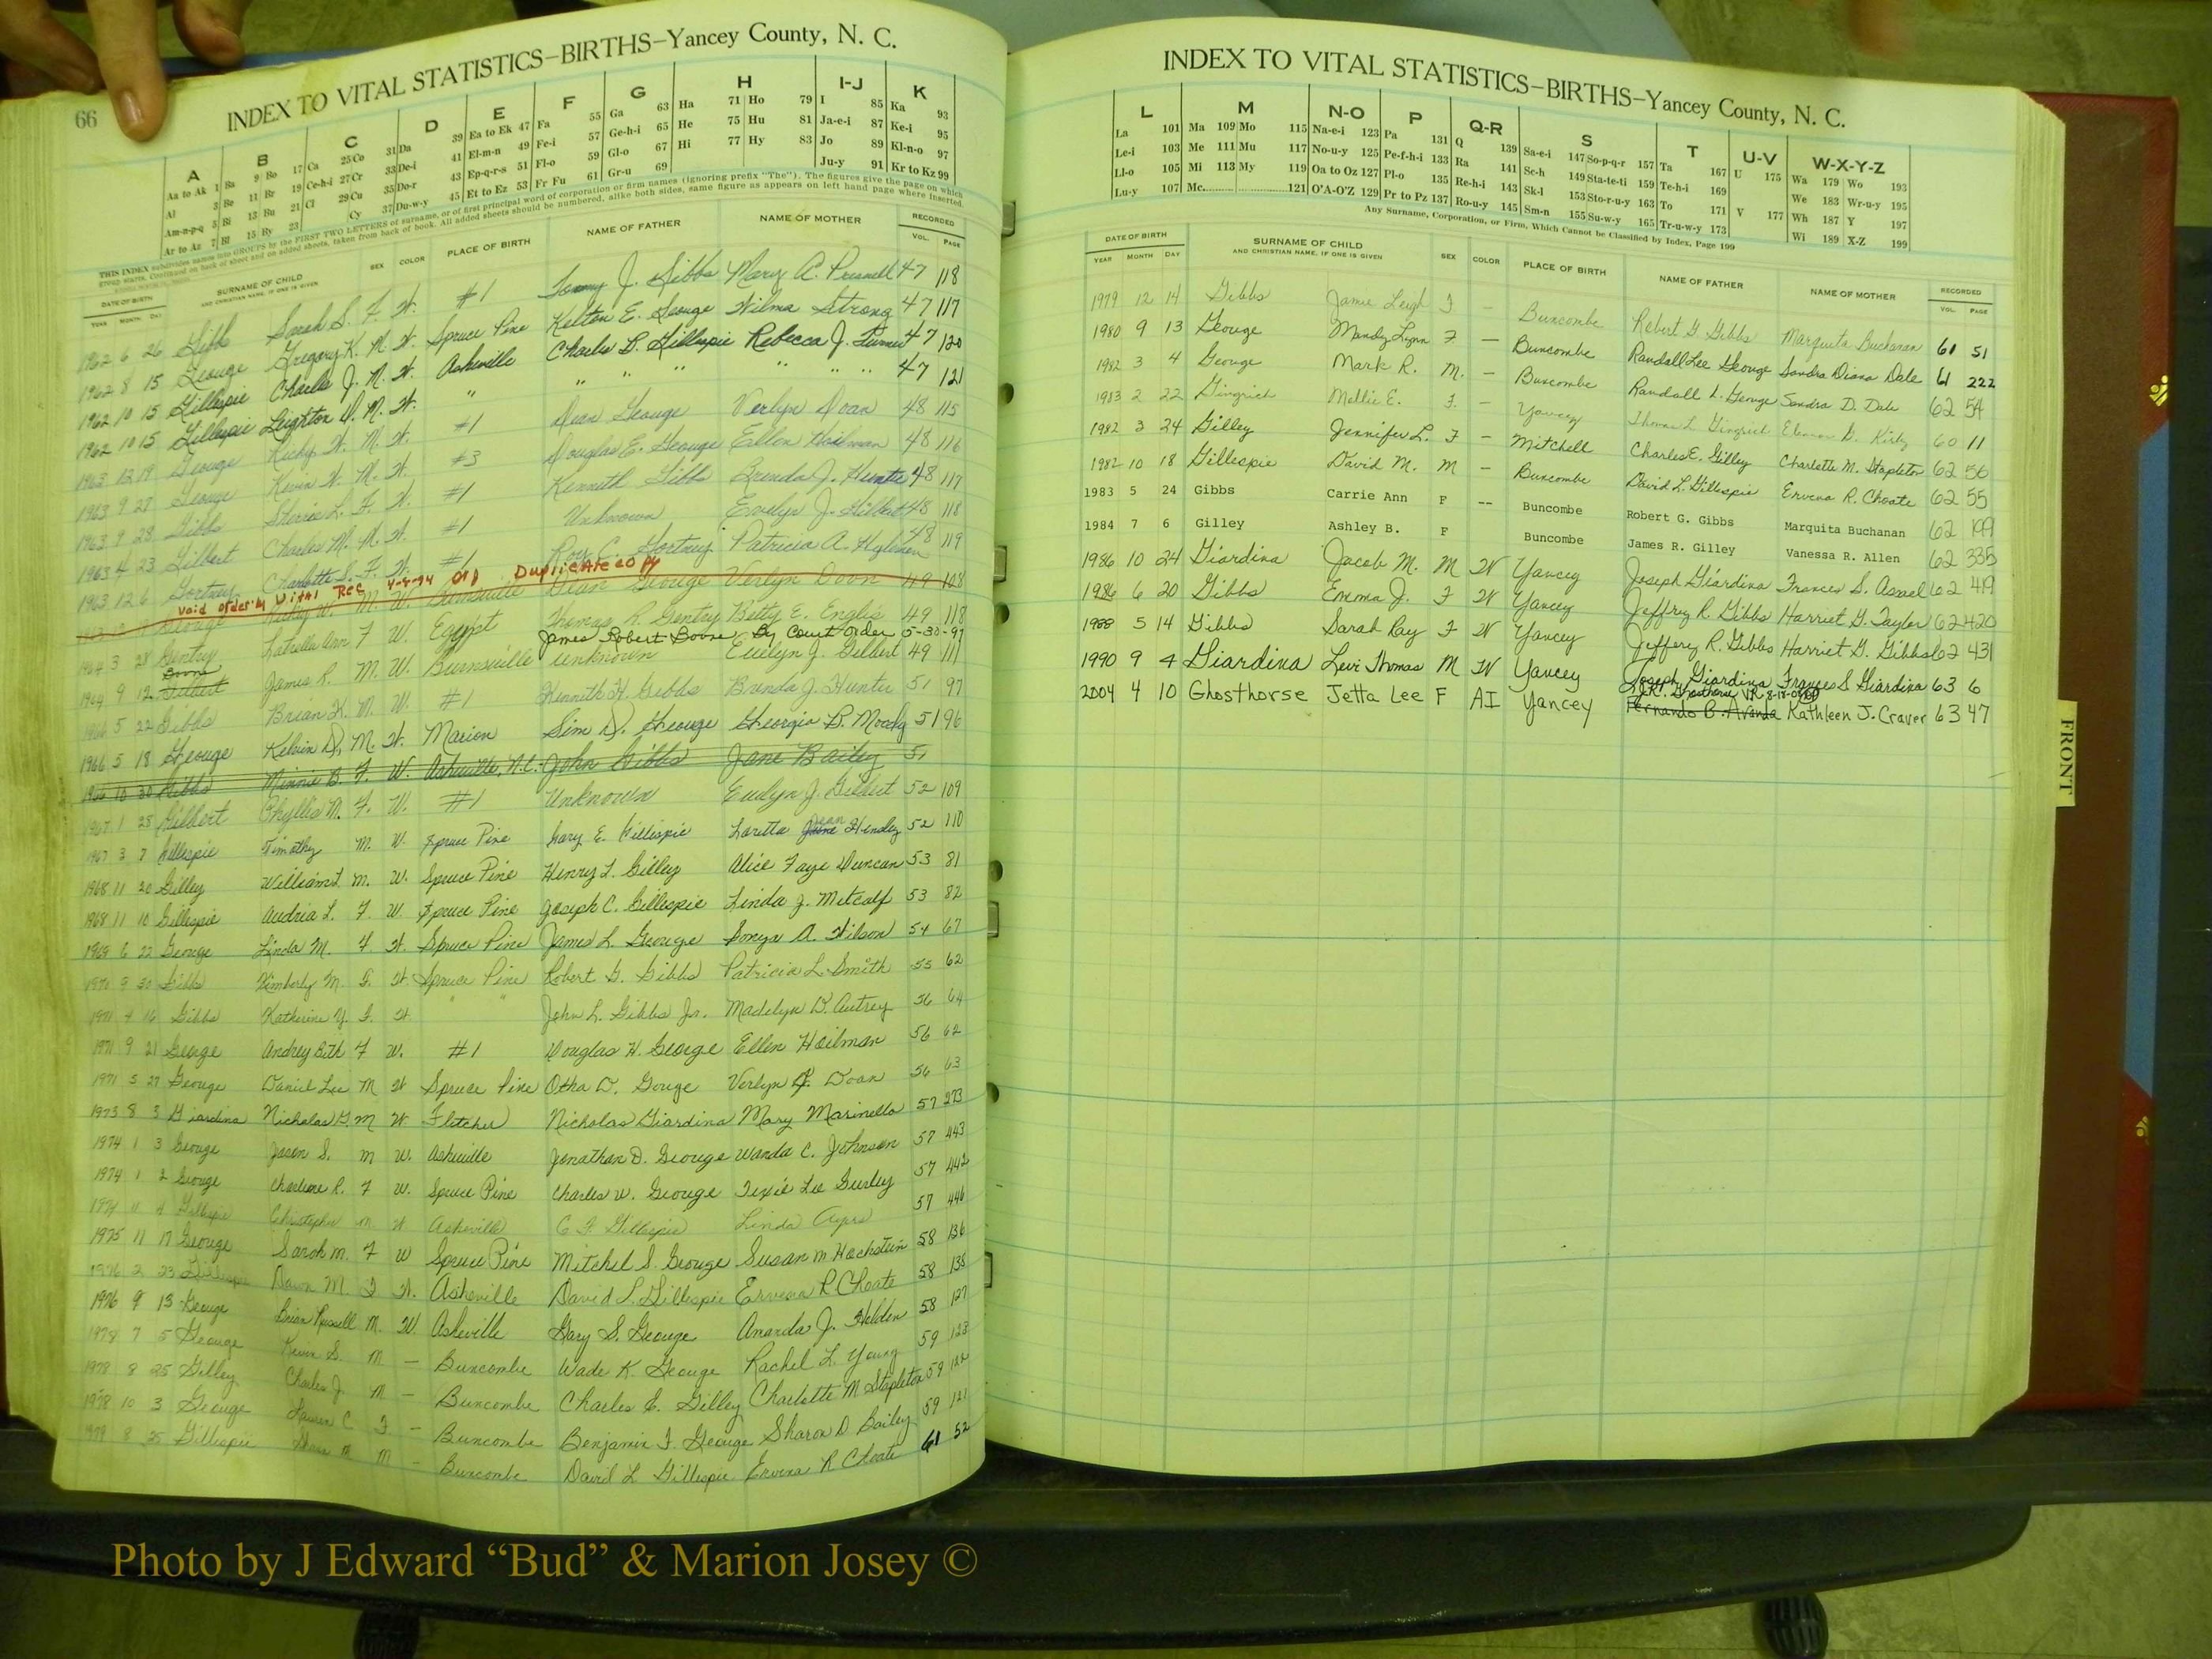 66
INDEX TO VITAL STATISTICS—BIRTHS—Yancey County, N. C.
A B C D E F G H I-J K
Aa to Ak 1 Ba 9 Bo 17 Ca 25 Co 31 Da 39 Ea to Ek 47 Fa 55 Ga 63 Ha 71 Ho 79 I 85 Ka 93
Al 3 Be 11 Br 19 Ce-h-i 27 Cr 33 De-i 41 El-m-n 49 Fe-i 57 Ge-h-i 65 He 75 Hu 81 Ja-e-i 87 Ke-i 95
Am-n-p-q 5 Bi 13 Bu 21 Cl 29 Cu 35 Do-r 43 Ep-q-r-s 51 Fl-o 59 Gl-o 67 Hi 77 Hy 83 Jo 89 Kl-n-o 97
Ar to Az 7 Bl 15 By 23 Cy 37 Du-w-y 45 Et to Ez 53 Fr Fu 61 Gr-u 69 Ju-y 91 Kr to Kz 99
THIS INDEX subdivides names into GROUPS by the FIRST TWO LETTERS of surname, or of first principal word of corporation or firm names (ignoring prefix "The"). The figures give the page on which
group starts. Continued on back of sheet and on added sheets, taken from back of book. All added sheets should be numbered, alike both sides, same figure as appears on left hand page where inserted.
DATE OF BIRTH SURNAME OF CHILD SEX COLOR PLACE OF BIRTH NAME OF FATHER NAME OF MOTHER RECORDED
YEAR MONTH DAY AND CHRISTIAN NAME, IF ONE IS GIVEN VOL. PAGE
1962 6 26 Gibbs Sarah S. F. W. #1 Tommy J. Gibbs Mary A. Presnell 47 118
1962 8 15 Geouge Gregory K. M. W. Spruce Pine Kelton E. Geouge Wilma Strong 47 117
1962 10 15 Gillespie Charles J. M. W. Asheville Charles B. Gillespie Rebecca J. Turner 47 120
1962 10 15 Gillespie Leighton D. M. W. " " " " " " " 47 121
1963 12 19 Geouge Ricky W. M. W. #1 Dean Geouge Verlyn Doan 48 115
1963 9 27 Geouge Kevin W. M. W. #3 Douglas E. Geouge Ellen Hoilman 48 116
1963 9 28 Gibbs Sherrie L. F. W. #1 Kenneth Gibbs Brenda J. Hunter 48 117
1963 4 23 Gilbert Charles M. M. W. #1 Unknown Evelyn J. Gilbert 48 118
1963 12 6 Gortney Charlotte S. F. W. #1 Roy C. Gortney Patricia A. 48 119
void order by Vital Rec 4-4-94 Duplicate copy
Geouge Ricky W. M. W. Burnsville Dean Geouge Verlyn Doan 49 108
1964 3 28 Gentry Latrella Ann F W. Egypt Thomas R. Gentry Betty E. English 49 118
Boone James Robert Boone By Court Order 5-30-97
1964 9 12 Gilbert James R. M. W. Burnsville unknown Evelyn J. Gilbert 49 117
1966 5 22 Gibbs Brian K. M. W. #1 Kenneth H. Gibbs Brenda J. Hunter 51 97
1966 5 18 Geouge Kelvin D. M. W. Marion Sim D. Geouge Georgia B. Moody 51 96
1966 10 30 Gibbs Minnie B. F. W. Asheville, N.C. John Gibbs Jane Bailey 51
1967 1 25 Gilbert Phyllis M. F. W. #1 Unknown Evelyn J. Gilbert 52 109
1967 3 7 Gillespie Timothy M. W. Spruce Pine Gary E. Gillespie Loretta Jean Hensley 52 110
1968 11 20 Gilley William T. M. W. Spruce Pine Henry T. Gilley Alice Faye Duncan 53 81
1968 11 10 Gillespie Audria L. F. W. Spruce Pine Joseph C. Gillespie Linda J. Metcalf 53 82
1969 6 22 George Linda M. F. W. Spruce Pine James L. George Sonya A. Wilson 54 67
1970 5 30 Gibbs Kimberly M. F. W. Spruce Pine Robert G. Gibbs Patricia L. Smith 55 62
1971 4 16 Gibbs Katherine Y. F. W. " " John L. Gibbs Jr. Madelyn D. Autrey 56 64
1971 9 21 George Andrey Beth F W. #1 Douglas W. George Ellen Hoilman 56 62
1971 5 27 Geouge Daniel Lee M W Spruce Pine Otha D. Gouge Verlyn Doan 56 63
1973 8 3 Giardina Nicholas G. M W Fletcher Nicholas Giardina Mary Marinello 57 273
1974 1 3 Geouge Jason S. M W. Asheville Jonathan D. Geouge Wanda C. Johnson 57 443
1974 1 2 Geouge Charlene R. F W. Spruce Pine Charles W. Geouge Texie Lee Gurley 57 442
1974 11 4 Gillespie Christopher M W Asheville C F. Gillespie Linda Ayers 57 446
1975 11 17 Geouge Sarah M. F W Spruce Pine Mitchel S. Geouge Susan M Hochstein 58 136
1976 2 23 Gillespie Dawn M. F W. Asheville David L. Gillespie Ervena R Choate 58 138
1976 9 13 Geouge Brian Russell M. W. Asheville Gary S. Geouge Amanda J. Holden 58 127
1978 7 5 Geouge Kevin S. M — Buncombe Wade K. Geouge Rachel L. Young 59 123
1978 8 25 Gilley Charles J. M — Buncombe Charles E. Gilley Charlotte M Stapleton 59 122
1978 10 3 Geouge Lauren C F — Buncombe Benjamin F. Geouge Sharon D Bailey 59 121
1979 8 25 Gillespie M M — Buncombe David L Gillespie Ervena R Choate 61 52
INDEX TO VITAL STATISTICS—BIRTHS—Yancey County, N. C.
L M N-O P Q-R S T U-V W-X-Y-Z
La 101 Ma 109 Mo 115 Na-e-i 123 Pa 131 Q 139 Sa-e-i 147 So-p-q-r 157 Ta 167 U 175 Wa 179 Wo 193
Le-i 103 Me 111 Mu 117 No-u-y 125 Pe-f-h-i 133 Ra 141 Sc-h 149 Sta-te-ti 159 Te-h-i 169 We 183 Wr-u-y 195
Ll-o 105 Mi 113 My 119 Oa to Oz 127 Pl-o 135 Re-h-i 143 Sk-l 153 Sto-r-u-y 163 To 171 V 177 Wh 187 Y 197
Lu-y 107 Mc 121 O'A-O'Z 129 Pr to Pz 137 Ro-u-y 145 Sm-n 155 Su-w-y 165 Tr-u-w-y 173 Wi 189 X-Z 199
Any Surname, Corporation, or Firm, Which Cannot be Classified by Index, Page 199
DATE OF BIRTH SURNAME OF CHILD SEX COLOR PLACE OF BIRTH NAME OF FATHER NAME OF MOTHER RECORDED
YEAR MONTH DAY AND CHRISTIAN NAME, IF ONE IS GIVEN VOL. PAGE
1979 12 14 Gibbs Jamie Leigh F — Buncombe Robert G Gibbs Marquita Buchanan 61 51
1980 9 13 Geouge Mandy Lynn F — Buncombe Randall Lee Geouge Sandra Diana Dale 61 222
1982 3 4 Geouge Mark R. M. — Buncombe Randall L. George Sandra D. Dale 62 54
1983 2 22 Gingrich Mollie E. F. — Yancey Thomas L Gingrich Eleanor G. Kirby 60 11
1982 3 24 Gilley Jennifer L. F — Mitchell Charles E. Gilley Charlotte M. Stapleton 62 56
1982 10 18 Gillespie David M. M — Buncombe David L. Gillespie Ervena R. Choate 62 55
1983 5 24 Gibbs Carrie Ann F -- Buncombe Robert G. Gibbs Marquita Buchanan 62 199
1984 7 6 Gilley Ashley B. F Buncombe James R. Gilley Vanessa R. Allen 62 335
1986 10 24 Giardina Jacob M. M W Yancey Joseph Giardina Frances S. Asrael 62 419
1986 6 20 Gibbs Emma J. F W Yancey Jeffrey R. Gibbs Harriet G. Taylor 62 420
1988 5 14 Gibbs Sarah Ray F W Yancey Jeffery R. Gibbs Harriet G. Gibbs 62 431
1990 9 4 Giardina Levi Thomas M W Yancey Joseph Giardina Frances S Giardina 63 6
2004 4 10 Ghosthorse Jetta Lee F AI Yancey Fernando B. Aranda Kathleen J. Craver 63 47
FRONT
Photo by J Edward “Bud” & Marion Josey ©